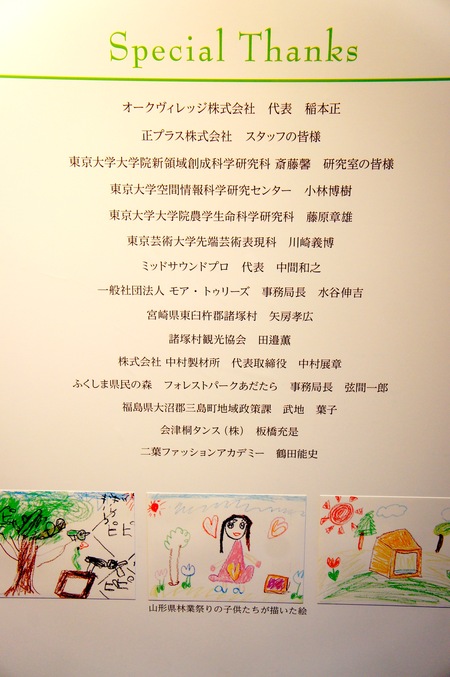 Special Thanks
オークヴィレッジ株式会社　代表　稲本正
正プラス株式会社　スタッフの皆様
東京大学大学院新領域創成科学研究科 斎藤馨　研究室の皆様
東京大学空間情報科学研究センター　小林博樹
東京大学大学院農学生命科学研究科　藤原章雄
東京芸術大学先端芸術表現科　川崎義博
ミッドサウンドプロ　代表　中間和之
一般社団法人 モア・トゥリーズ　事務局長　水谷伸吉
宮崎県東臼杵郡諸塚村　矢房孝広
諸塚村観光協会　田邉薫
株式会社 中村製材所　代表取締役　中村展章
ふくしま県民の森　フォレストパークあだたら　事務局長　弦間一郎
福島県大沼郡三島町地域政策課　武地　葉子
会津桐タンス（株）　板橋充是
二葉ファッションアカデミー　鶴田能史
ピピ
ピピ
山形県林業祭りの子供たちが描いた絵